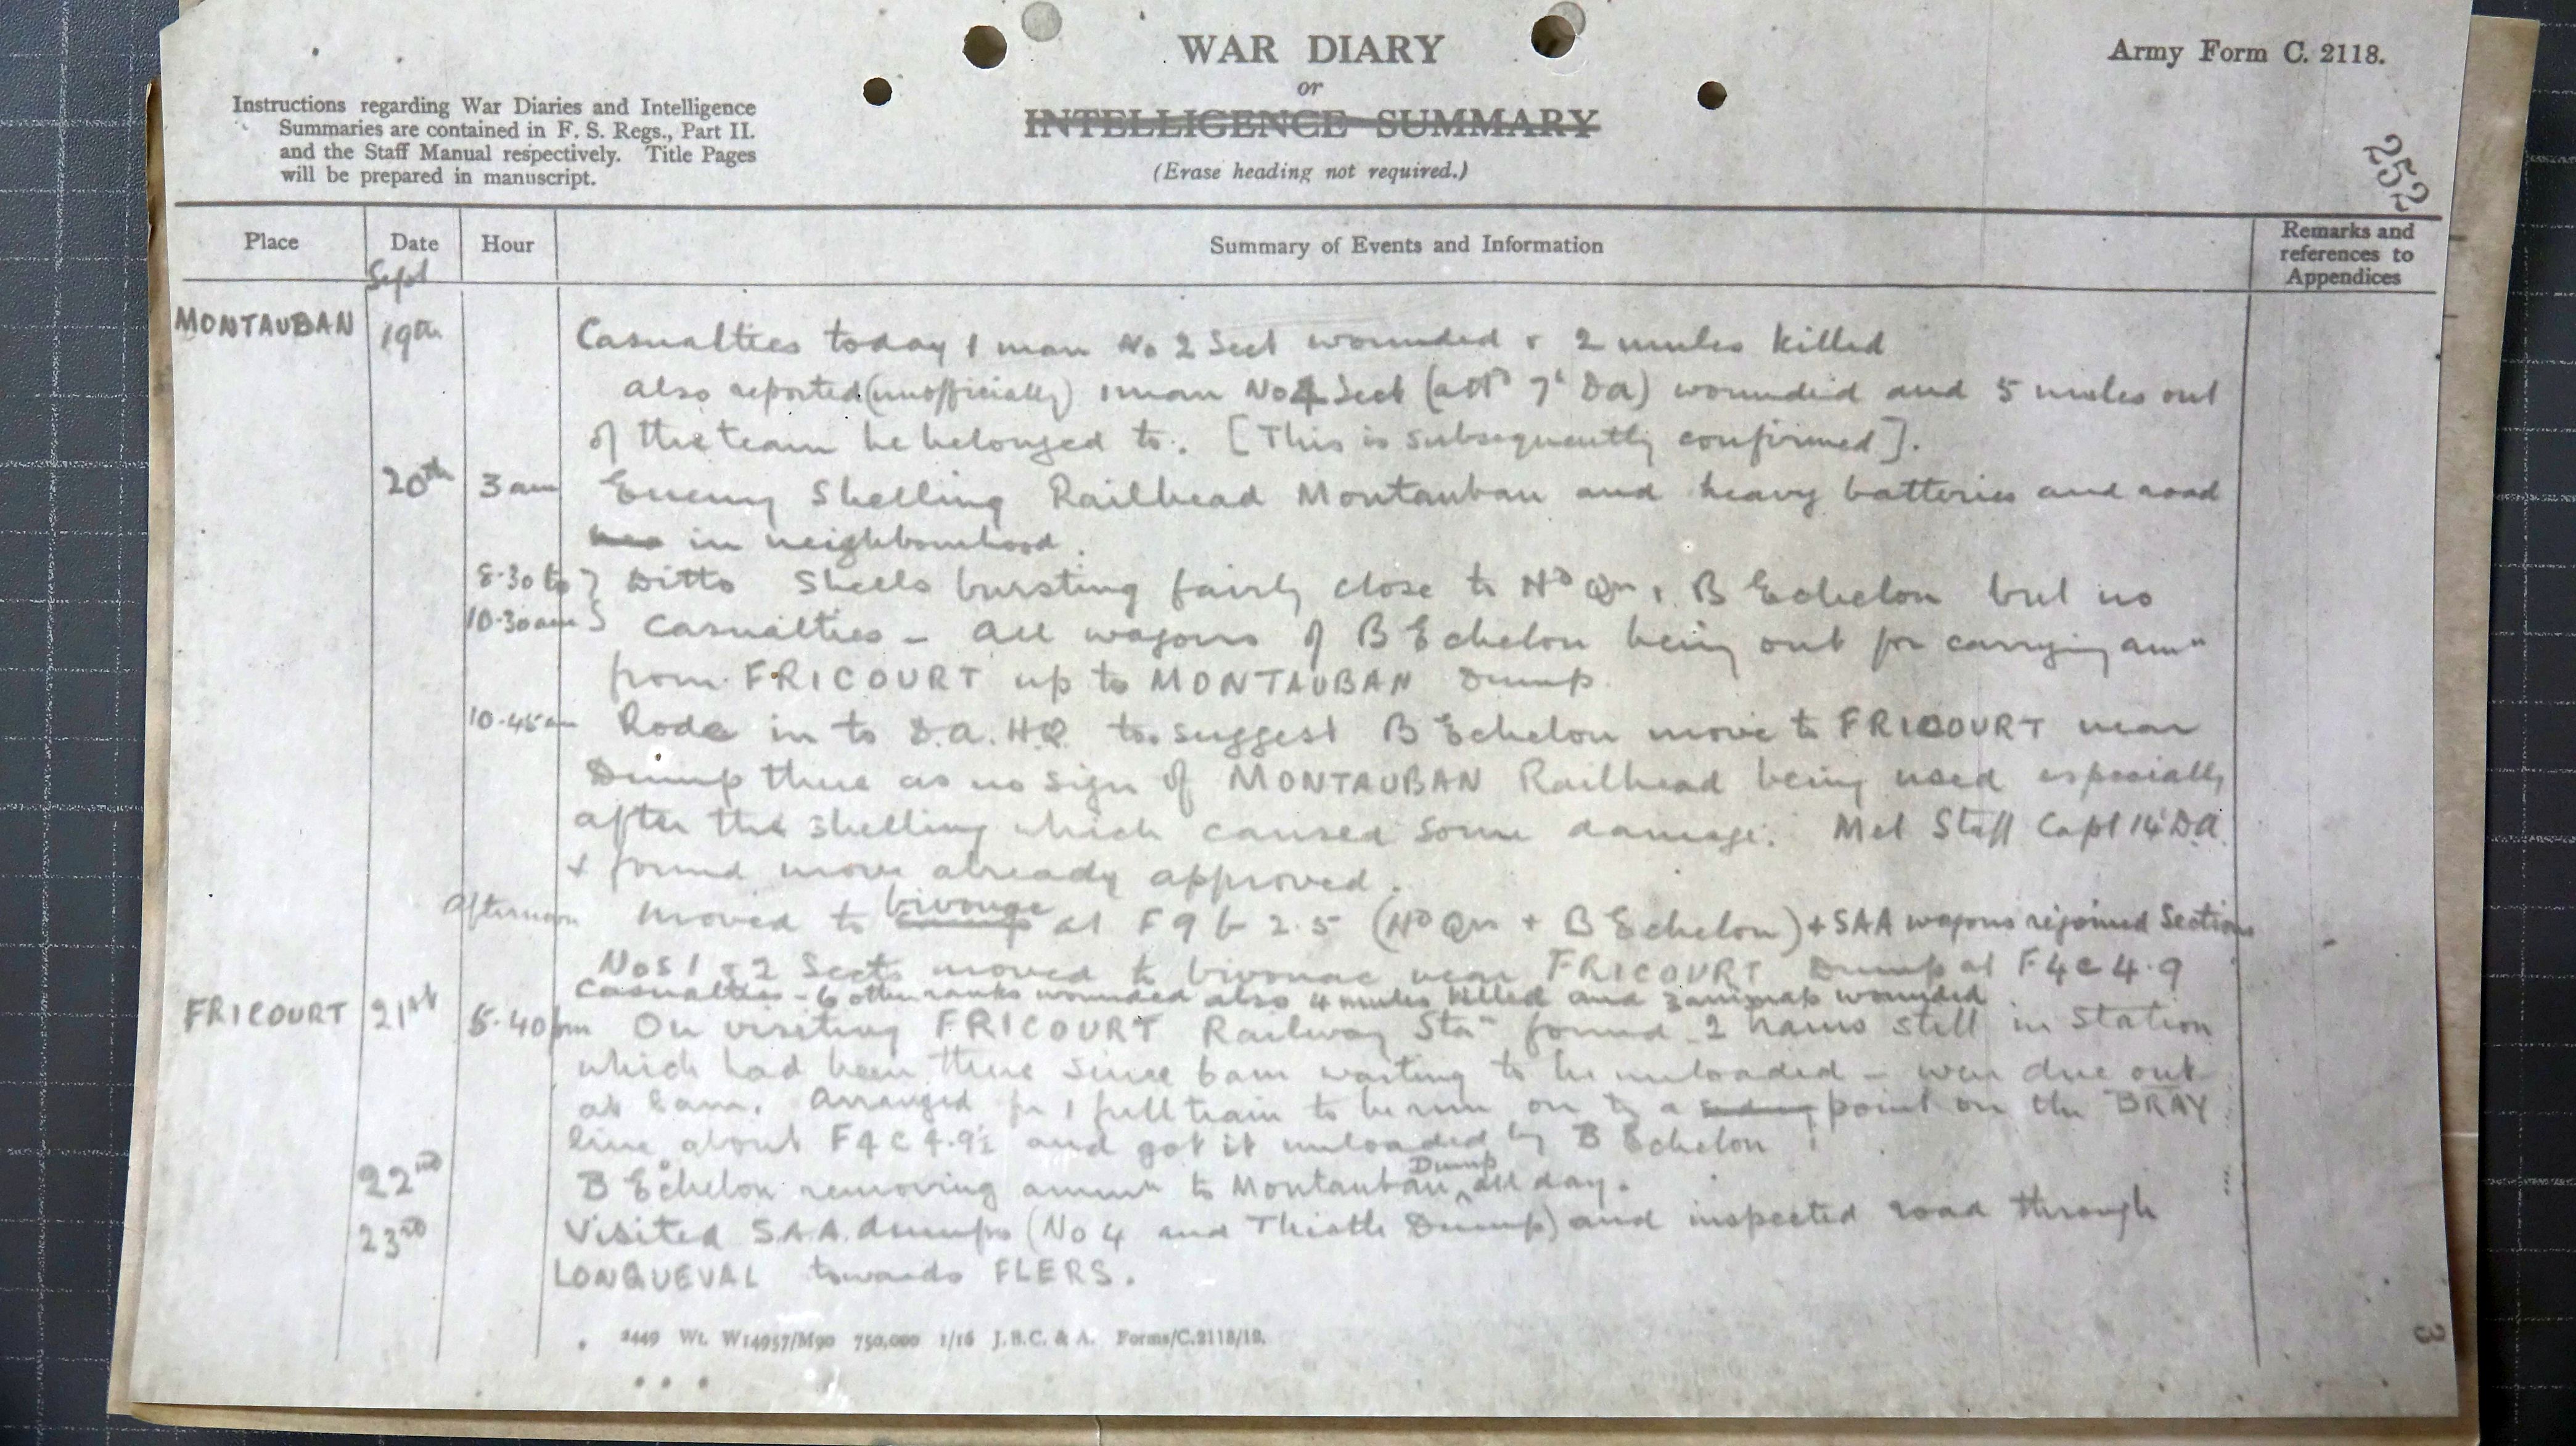 WAR DIARY
or
INTELLIGENCE SUMMARY
(Erase heading not required.)
Army Form C. 2118.
Instructions regarding War Diaries and Intelligence
Summaries are contained in F. S. Regs., Part II.
and the Staff Manual respectively. Title Pages
will be prepared in manuscript.
252
Place Date Hour Summary of Events and Information Remarks and
references to
Appendices
Sept
MONTAUBAN 19th Casualties today 1 man No 2 Sect wounded & 2 mules killed
also reported (unofficially) 1 man No 4 Sect (attd 7' DA) wounded and 5 mules out
of the team he belonged to. [This is subsequently confirmed].
20th 3 am Enemy Shelling Railhead Montauban and heavy batteries and road
in neighbourhood.
8.30 to } Ditto Shells bursting fairly close to Hd Qrs & B Echelon but no
10.30 am } Casualties - All wagons of B Echelon being out for carrying amn
from FRICOURT up to MONTAUBAN Dump.
10.45 am Rode in to D.A.H.Q. to suggest B Echelon move to FRICOURT near
Dump there as no sign of MONTAUBAN Railhead being used especially
after the shelling which caused some damage. Met Staff Capt 14' D.A.
& found move already approved.
Afternoon Moved to bivouac at F 9 b 2.5 (Hd Qrs + B Echelon) + SAA wagons rejoined Sections
Nos 1 & 2 Sects moved to bivouac near FRICOURT Dump at F 4 c 4.9
Casualties - 6 other ranks wounded also 4 mules killed and 3 animals wounded
FRICOURT 21st 5.40 pm On visiting FRICOURT Railway Stan found 2 trains still in Station
which had been there since 6 am waiting to be unloaded - were due out
at 8 am. Arranged for 1 full train to be run on to a siding point on the BRAY
line about F 4 C 4.9½ and got it unloaded by B Echelon
22nd B Echelon removing ammn to Montauban Dump all day.
23rd Visited S.A.A. dumps (No 4 and Thistle Dump) and inspected road through
LONGUEVAL towards FLERS.
2449 Wt. W14957/M90 750,000 1/16 J.B.C. & A. Forms/C.2118/12.
3